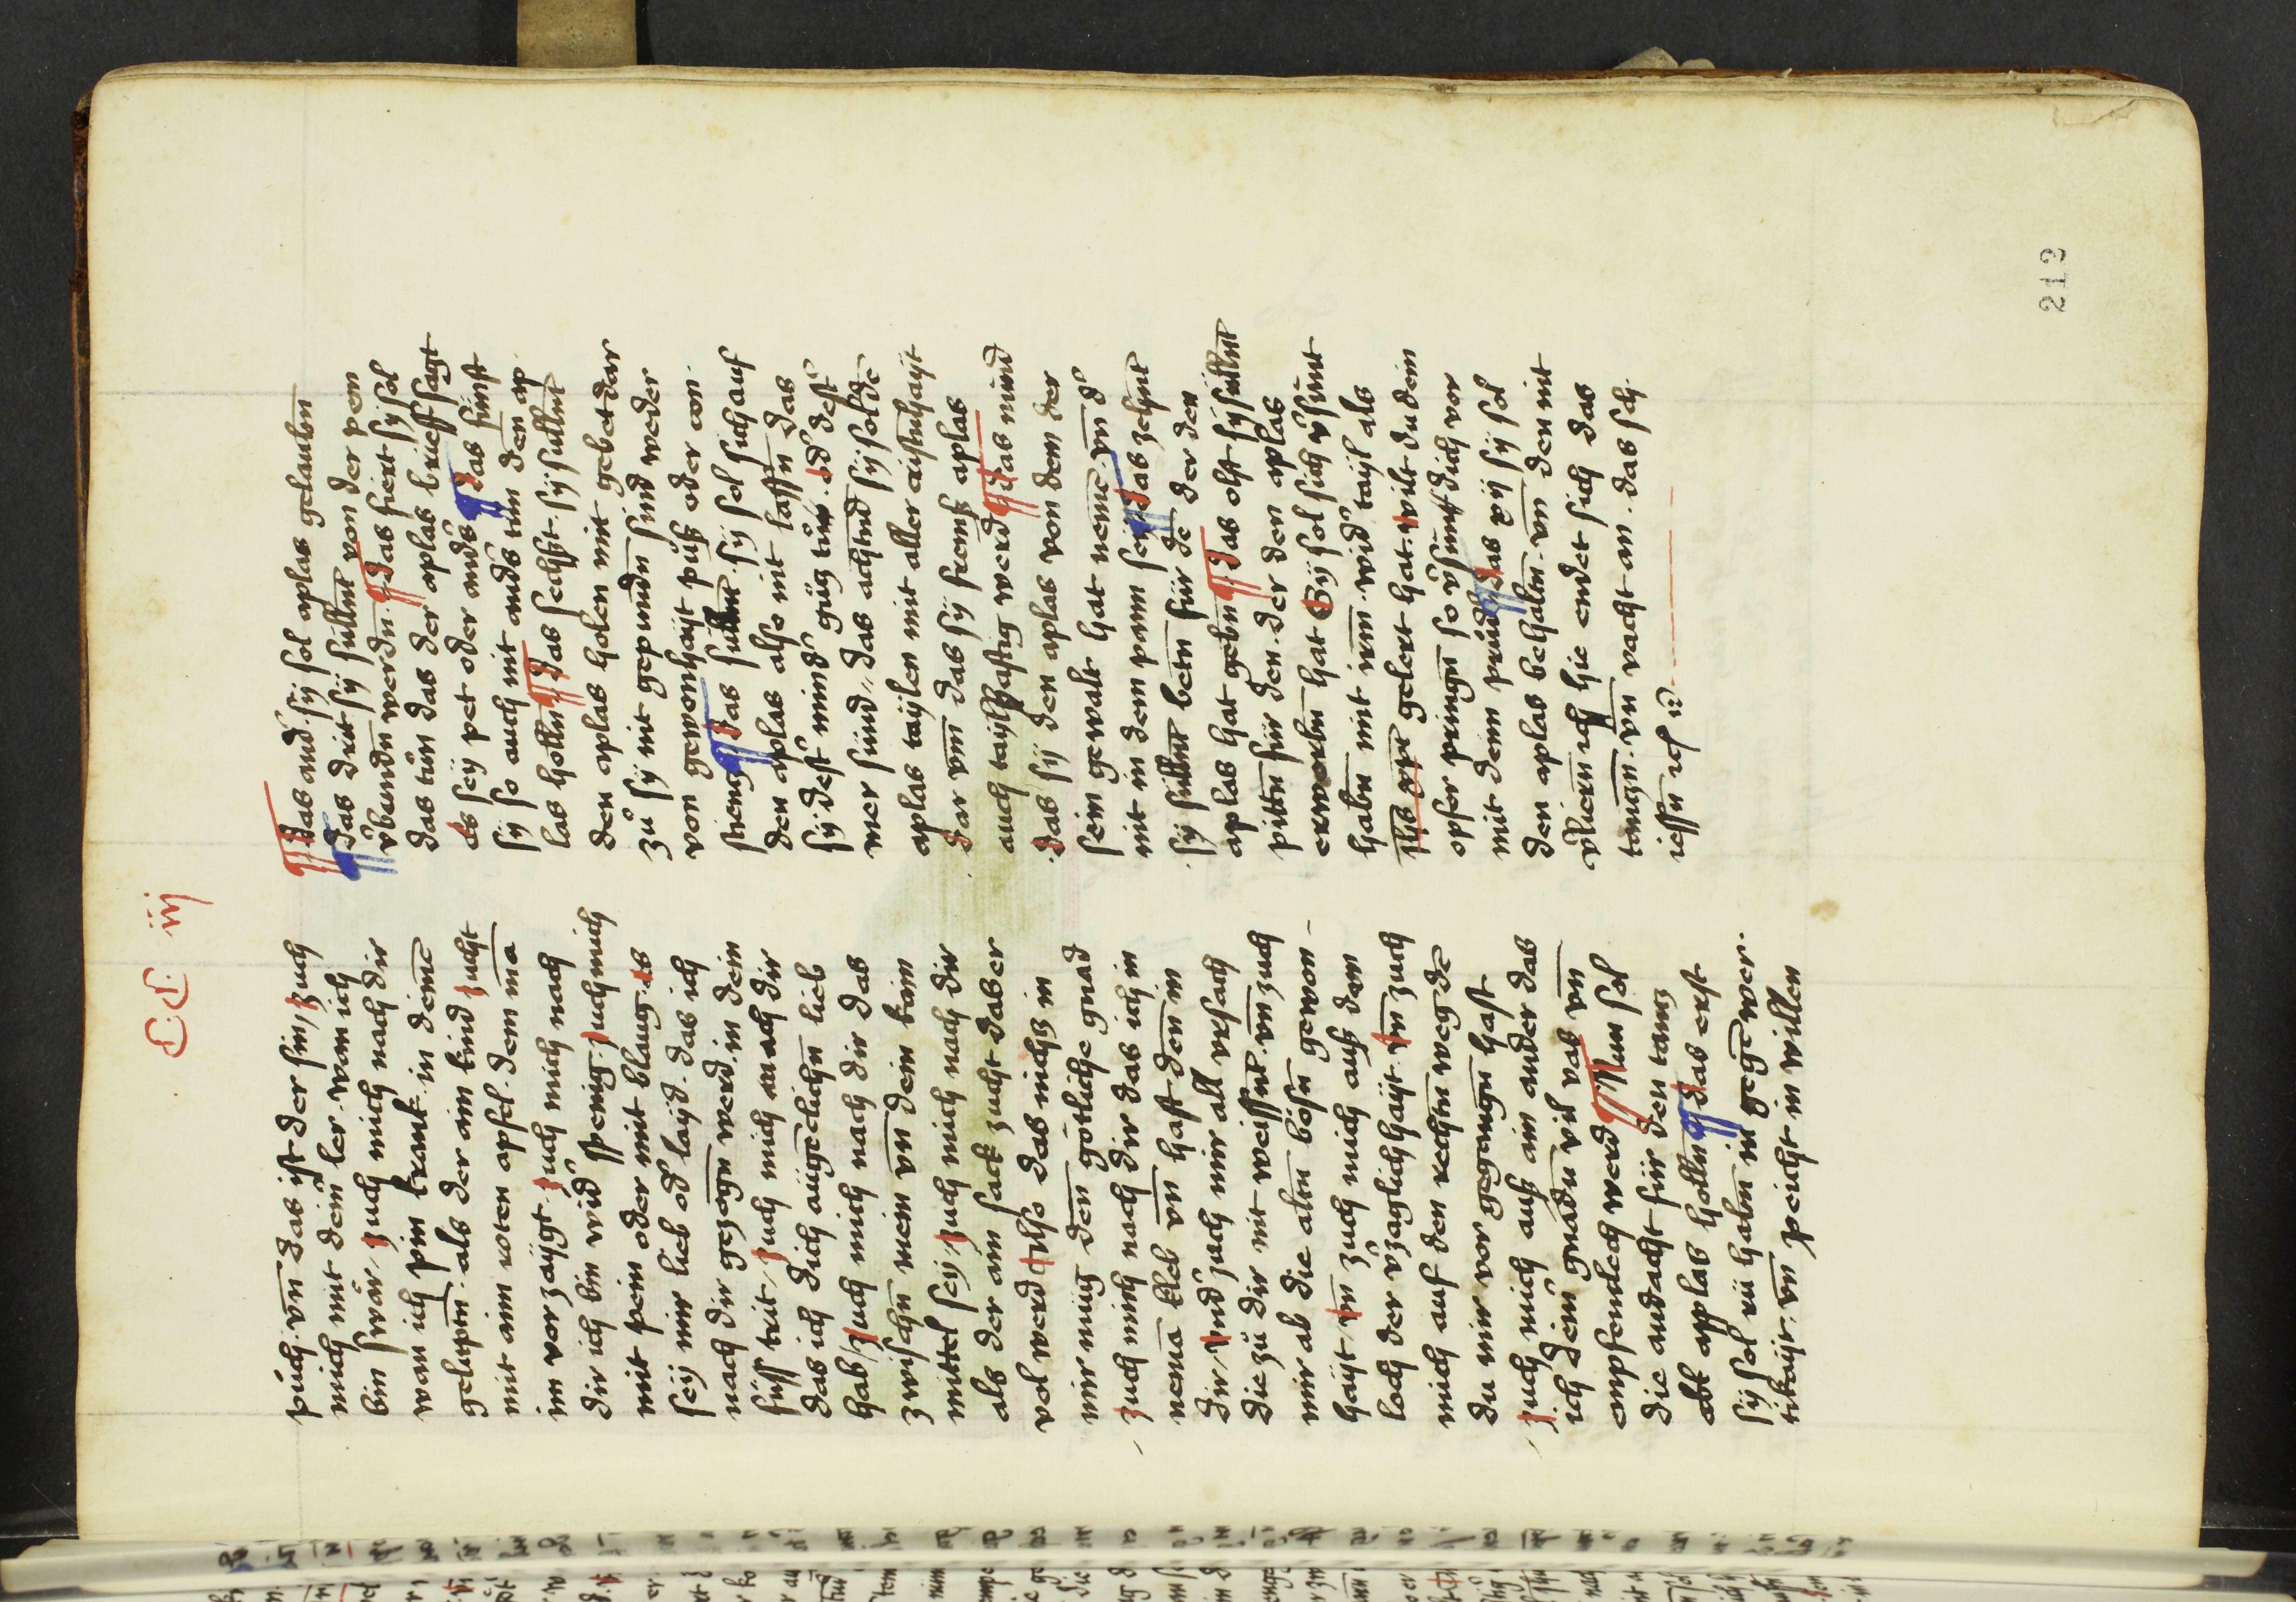 CC iij
puch. vn̄ das ist der sin / zuch
mich mit deim̄ ler. wan ich
bin swär / zuch mich nach dir
wan ich pin krank. in deine
gelupn̄. als der ain kind zucht
mit aim roten apfel. dem ma
im vor zaÿgt zuch mich nach
dir ich bin wid' spenig. zuch mich
mit pein oder mit klaug. es
seÿ mir lieb od' laÿd. das ich
nach dir gezogn̄ werd. in dein
süss trit / zuch mich nach dir
das ich dich aügē lichn̄ lieb
hab / zuch mich nach dir das
zwischn̄ mein vn̄ dein kain
mittel seÿ / zuch mich nach dir
als der ain sack zucht das er
vol werd Also das nichtz in
mir müg den̄ götliche gnad
zuch mich nach dir das ich in
nema lieb vn̄ hast den̄ in
dir / vnd zuch mir all vrsach
die zü dir nit weissnt. vn̄ zuch
mir ab die altn̄ bösn̄ gewon-
haÿt / vn̄ zuch mich auß dem
loch der v'zaglichhaÿt. vn̄ zuch
mich auf den rechtn̄ weg dē
du mir vor gegangn̄ hast
zuch mich auß ain ander das
ich deinr̄ gnadn̄ vil vas vn̄
enpfenclech werd ¶ Nun sol
die andacht für den tantz
abt applas holln̄ ¶ das erst
sÿ sol rü habn̄ in gegēwer.
tikaÿt. vn̄ peicht in willen
¶ das and' sÿ sol aplas gelaubn̄
¶ das drit sÿ süllnt von der pein
v'bandn̄ werdn̄ ¶ das fiert sÿ sol
das tün das der aplas brieff sagt
es seÿ pet oder and's ¶ das fünft
sÿ so auch nit and's tün den ap
las holln̄ ¶ das sechst. sÿ sullnt
den aplas holen mit gebet dar
zü sÿ nit gepundn̄ sind weder
von gewonhaÿt püß oder con
stienz ¶ das sullnt. sÿ sol sich auf
den aplas also nit lassn̄ das
sÿ dest' mind' güz tün. od' dest'
mer sünd // das achtend sÿ sol dē
aplas taÿlen mit aller cristnhaÿt
dar vm̄ das sÿ fremß aplas
auch taÿlhaftig werd ¶ das nünd
das sÿ den aplas von dem der
sein gewalt hat neme. vn̄ d'
nit in dem pann seÿ ¶ das zehnt
sÿ süllnt betn̄ für dē der den
aplas hat gebn̄ ¶ das olft sÿ süllnt
pittn̄ für den. der den aplas
erworbn̄ hat Sÿ sol sich v'sünt
habn̄ mit irm̄. wid' taÿl als
ihs xpt gelert hat. wilt du dein
opfer pringn̄ so v'sünss dich vor
mit deim prüd' ¶ das xij sÿ sol
den aplas behaltn̄. vn̄ den nit
v'liern̄ ich hie endet sich das
tantzn̄. vn̄ vacht an. das sch
iessn̄ ich
212